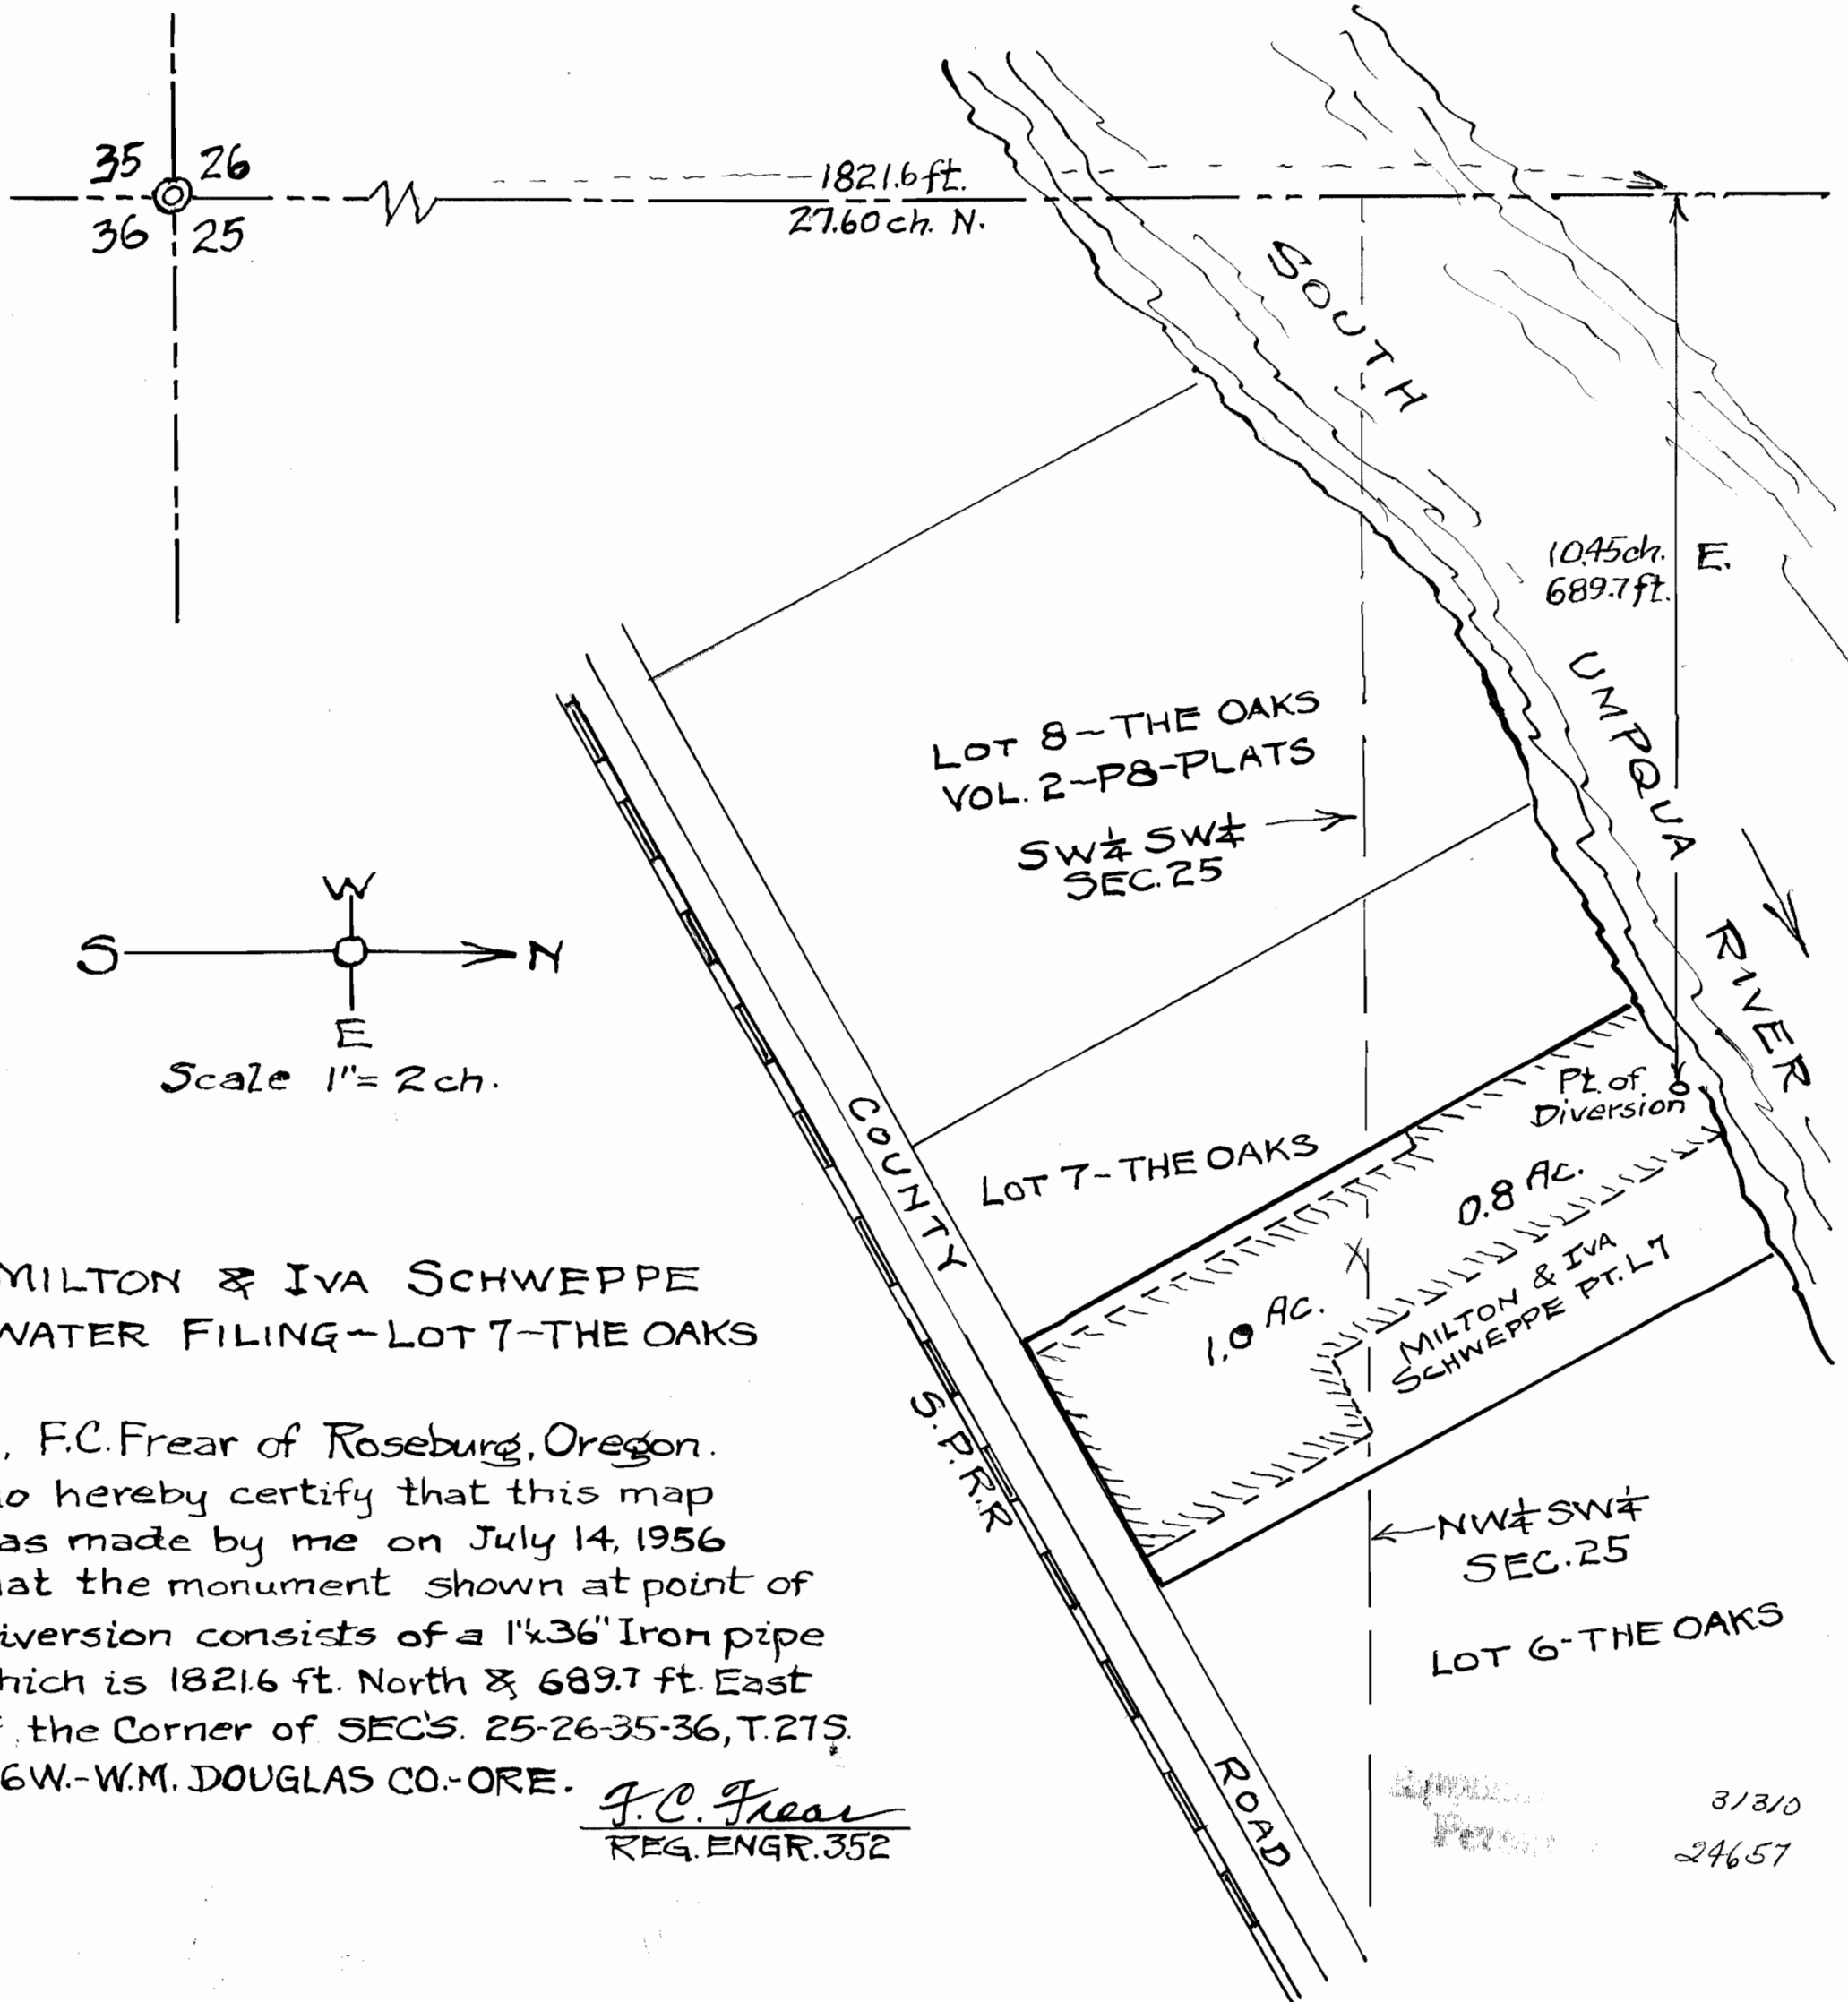 35 26
36 25
1821.6 ft.
27.60 ch. N.
SOUTH
UMPQUA
RIVER
10.45 ch. E.
689.7 ft.
LOT 8 - THE OAKS
VOL. 2 - P8 - PLATS
SW¼ SW¼
SEC. 25
W
S N
E
Scale 1" = 2 ch.
Pt. of
Diversion
COUNTY
LOT 7 - THE OAKS
0.8 AC.
1.0 AC.
MILTON & IVA
SCHWEPPE PT. L7
S.P.R.R
MILTON & IVA SCHWEPPE
WATER FILING - LOT 7 - THE OAKS
, F.C. Frear of Roseburg, Oregon.
o hereby certify that this map
as made by me on July 14, 1956
at the monument shown at point of
iversion consists of a 1"x36" Iron pipe
hich is 1821.6 ft. North & 689.7 ft. East
f the Corner of SEC'S. 25-26-35-36, T.27S.
6W.-W.M. DOUGLAS CO.-ORE.
F.C. Frear
REG. ENGR. 352
NW¼ SW¼
SEC. 25
LOT 6 - THE OAKS
ROAD
31310
24657